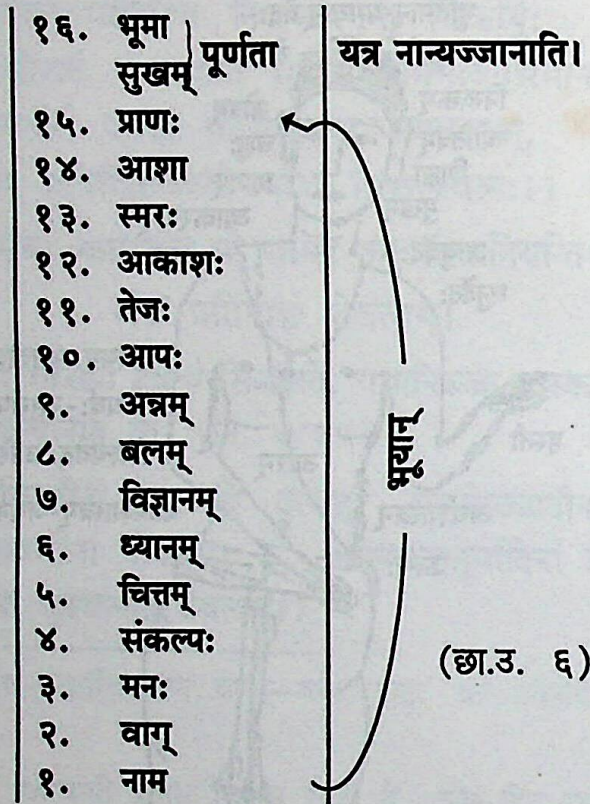 १६. भूमा } पूर्णता यत्र नान्यज्जानाति।
सुखम्
१५. प्राणः
१४. आशा
१३. स्मरः
१२. आकाशः
११. तेजः
१०. आपः
९. अन्नम्
८. बलम्
७. विज्ञानम्
६. ध्यानम्
५. चित्तम्
४. संकल्पः
३. मनः
२. वाग्
१. नाम
भूयान्
(छा.उ. ६)